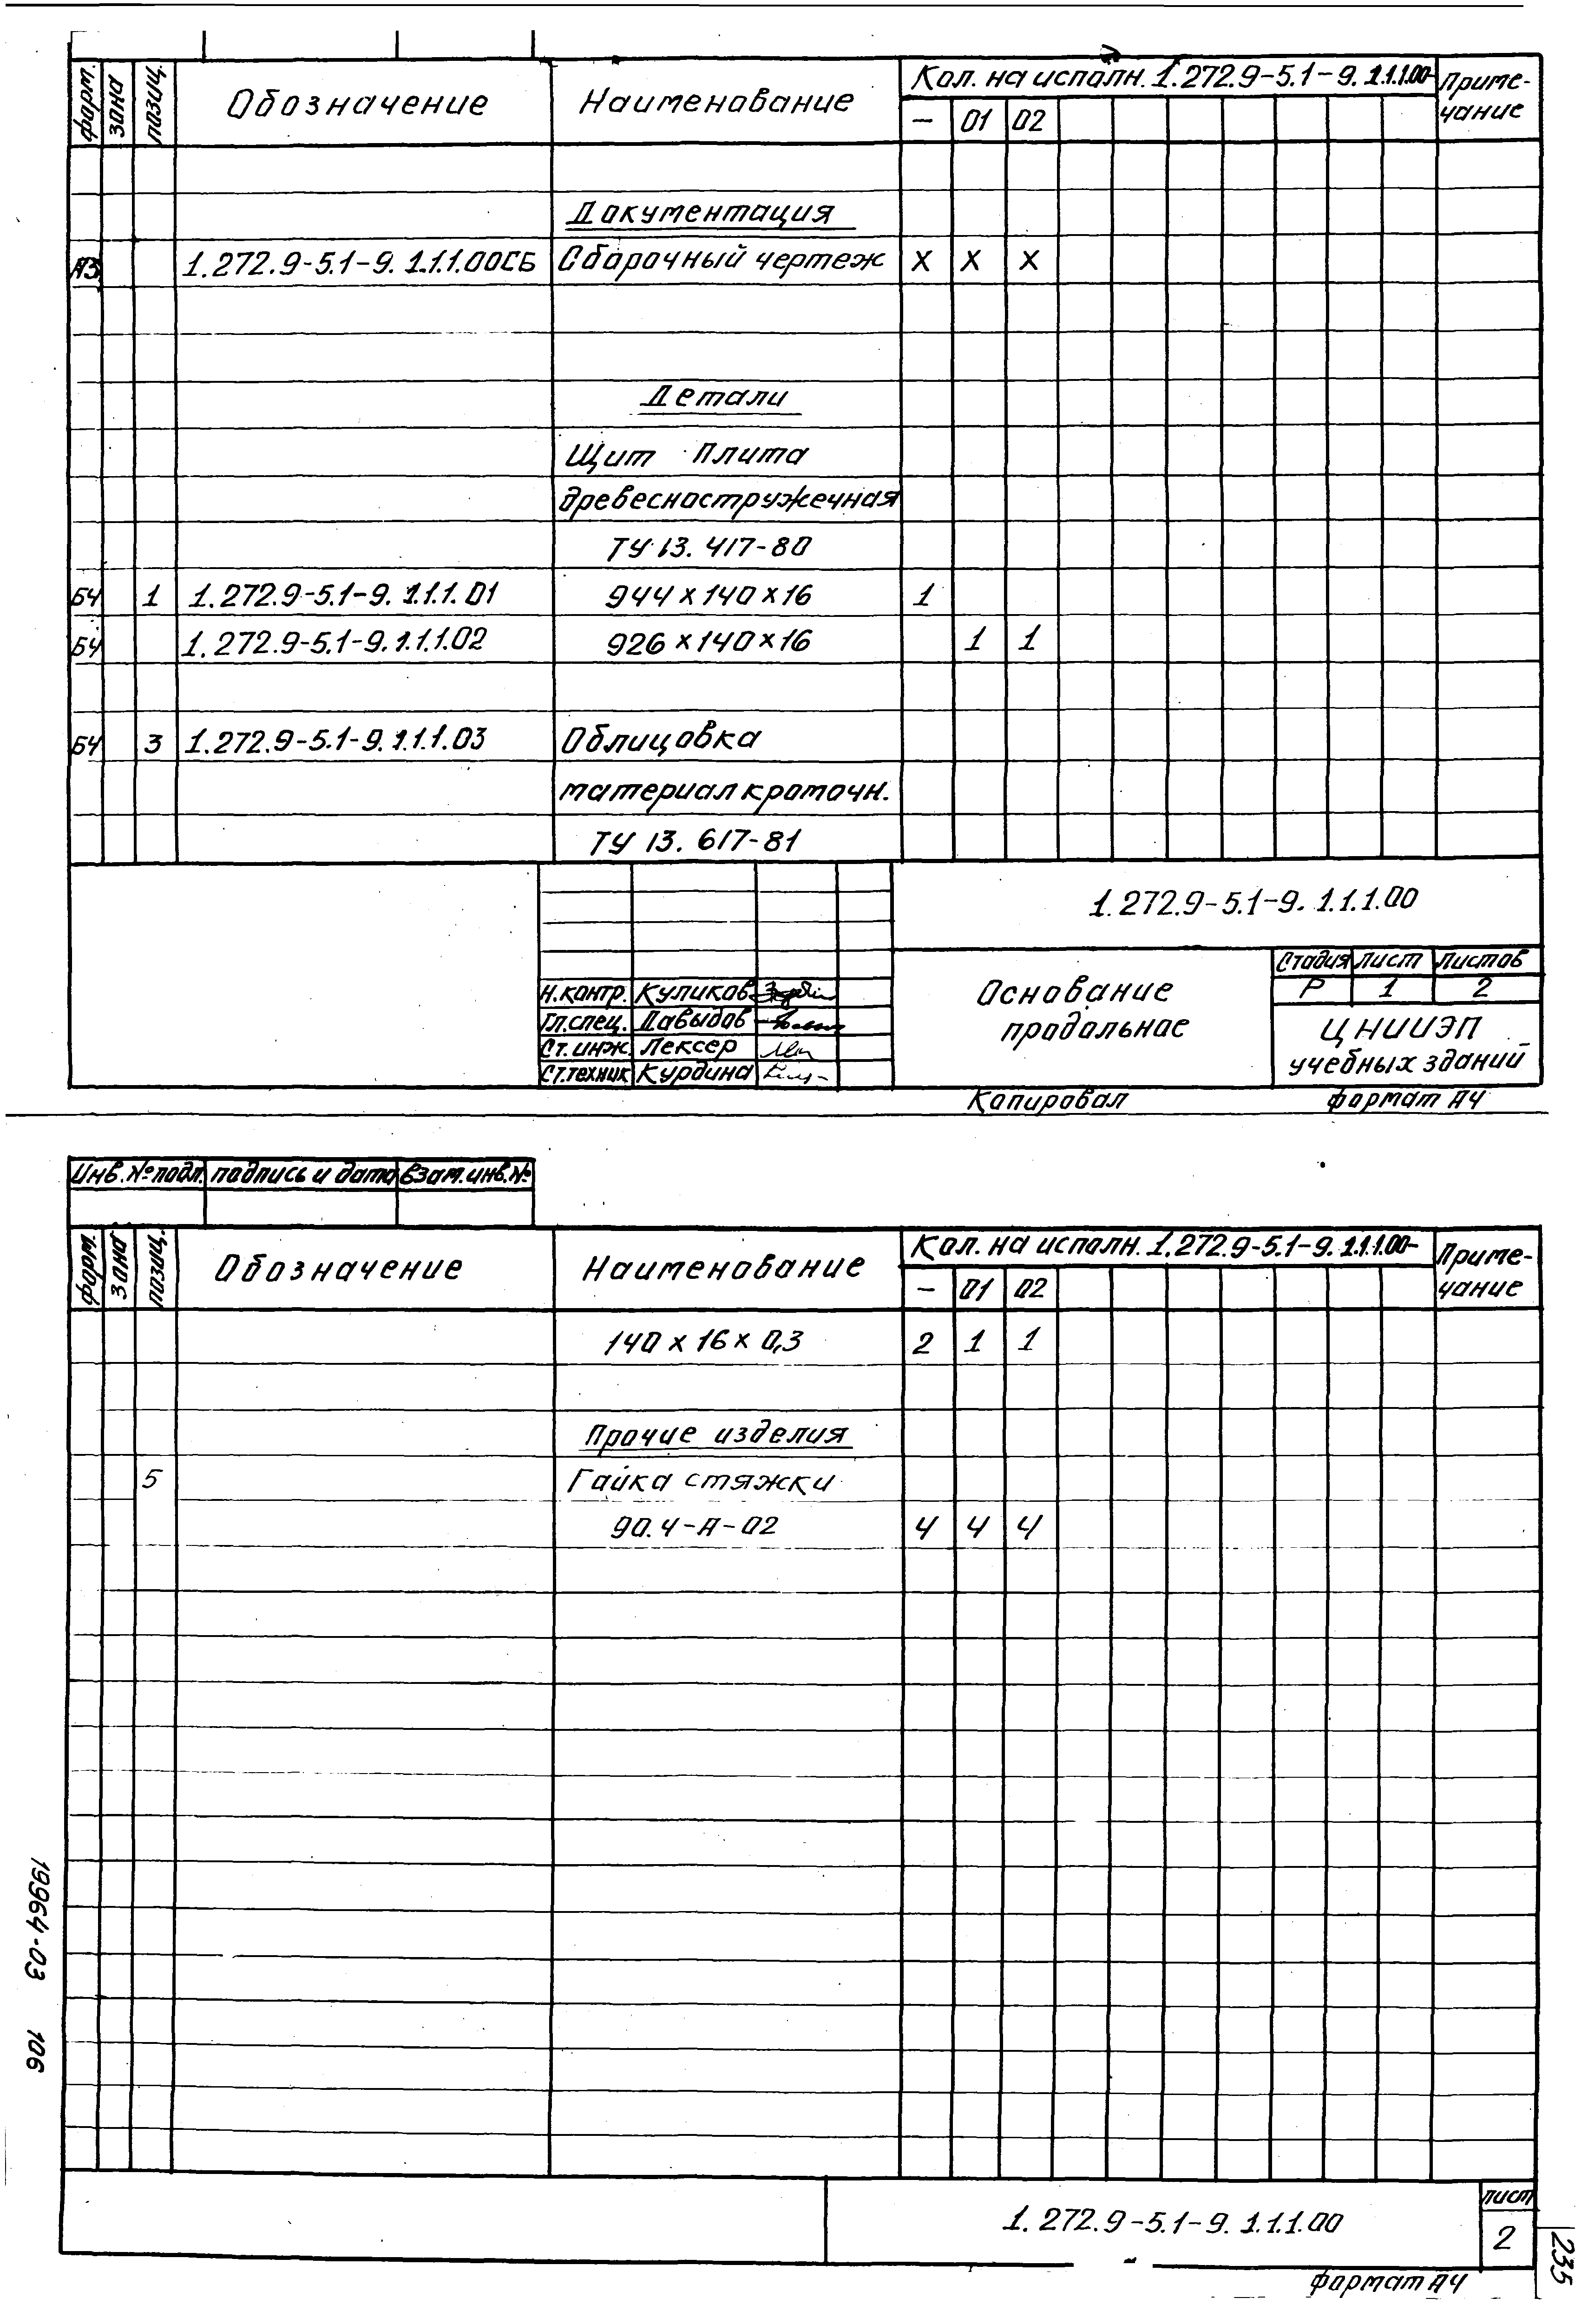 форм. зона позиц. Обозначение Наименование Кол. на исполн. 1.272.9-5.1-9. 1.1.1.00- Приме-
чание
— 01 02
Документация
А3 1.272.9-5.1-9. 1.1.1.00СБ Сборочный чертеж X X X
Детали
Щит Плита
древесностружечная
ТУ 13. 417-80
БЧ 1 1.272.9-5.1-9. 1.1.1.01 944 x 140 x 16 1
БЧ 1.272.9-5.1-9. 1.1.1.02 926 x 140 x 16 1 1
БЧ 3 1.272.9-5.1-9. 1.1.1.03 Облицовка
материал кромочн.
ТУ 13. 617-81
1.272.9-5.1-9. 1.1.1.00
Основание
продольное
Стадия Лист Листов
Р 1 2
ЦНИИЭП
учебных зданий
Н.контр. Куликов
Гл.спец. Давыдов
Ст.инж. Лексер
Ст.техник Курдина
Копировал формат А4
Инв. № подл. подпись и дата взам. инв. №
форм. зона позиц. Обозначение Наименование Кол. на исполн. 1.272.9-5.1-9. 1.1.1.00- Приме-
чание
— 01 02
140 x 16 x 0,3 2 1 1
Прочие изделия
5 Гайка стяжки
90.4-А-02 4 4 4
1. 272.9-5.1-9. 1.1.1.00
лист
2
формат А4
19964-03 106
235